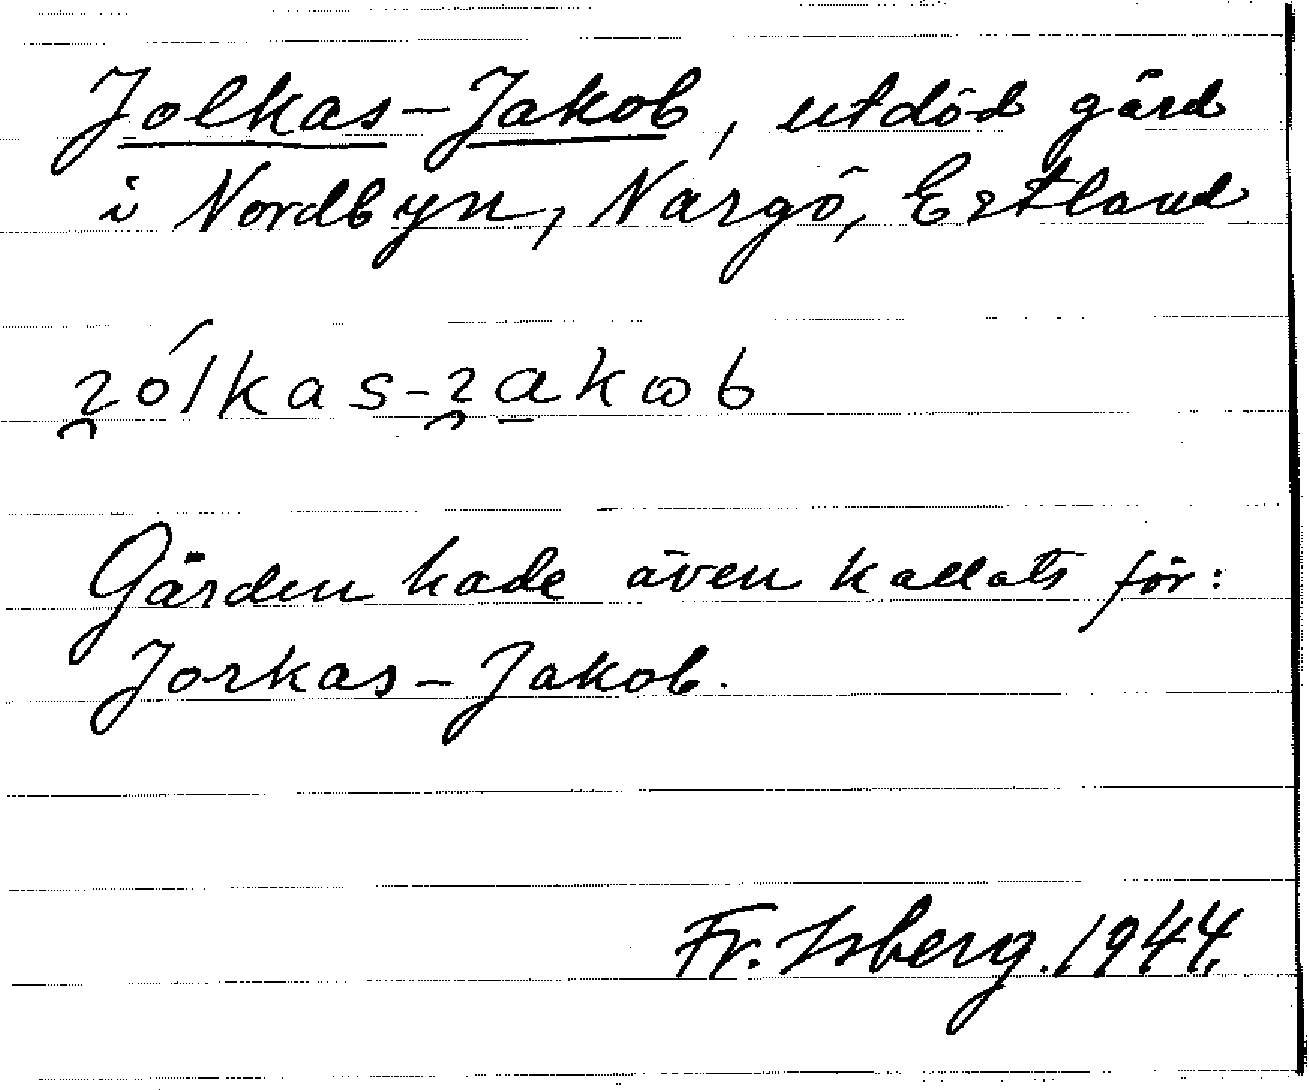 Jolkas-Jakob, utdöd gård
i Nordbyn, Nargö, Estland
Gården hade även kallats för:
Jorkas-Jakob.
Fr. Isberg. 1944.